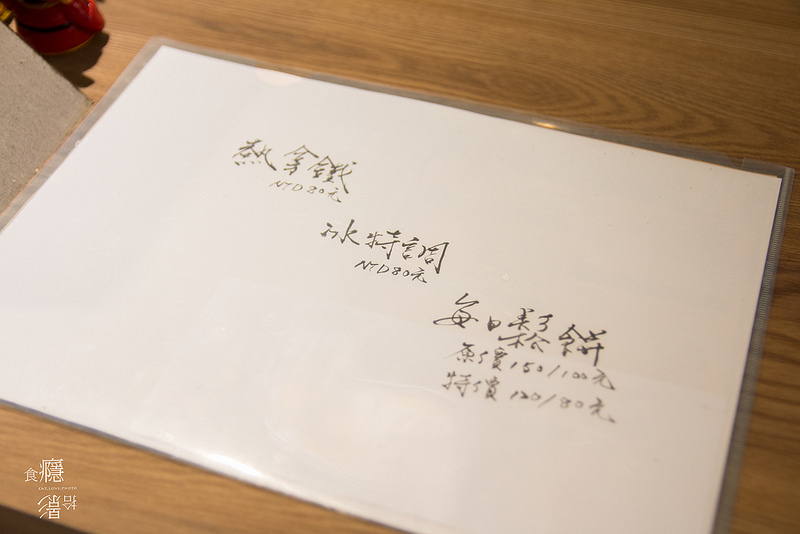 熱拿鐵
NTD80元
冰特調
NTD80元
每日鬆餅
原價150/100元
特價120/80元
食癮
EAT.LOVE.PHOTO
拾影